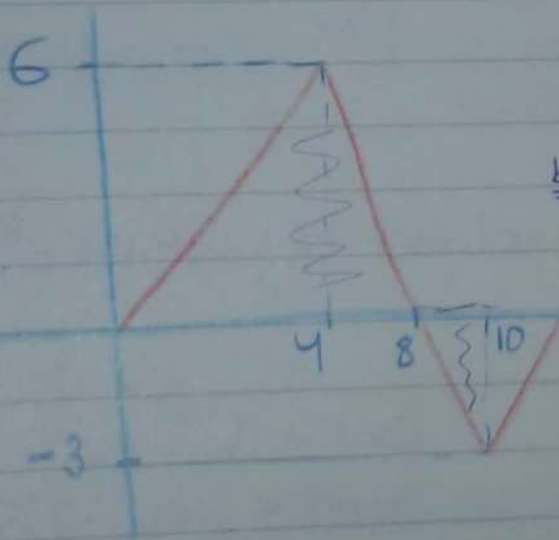 6
4
8
10
-3